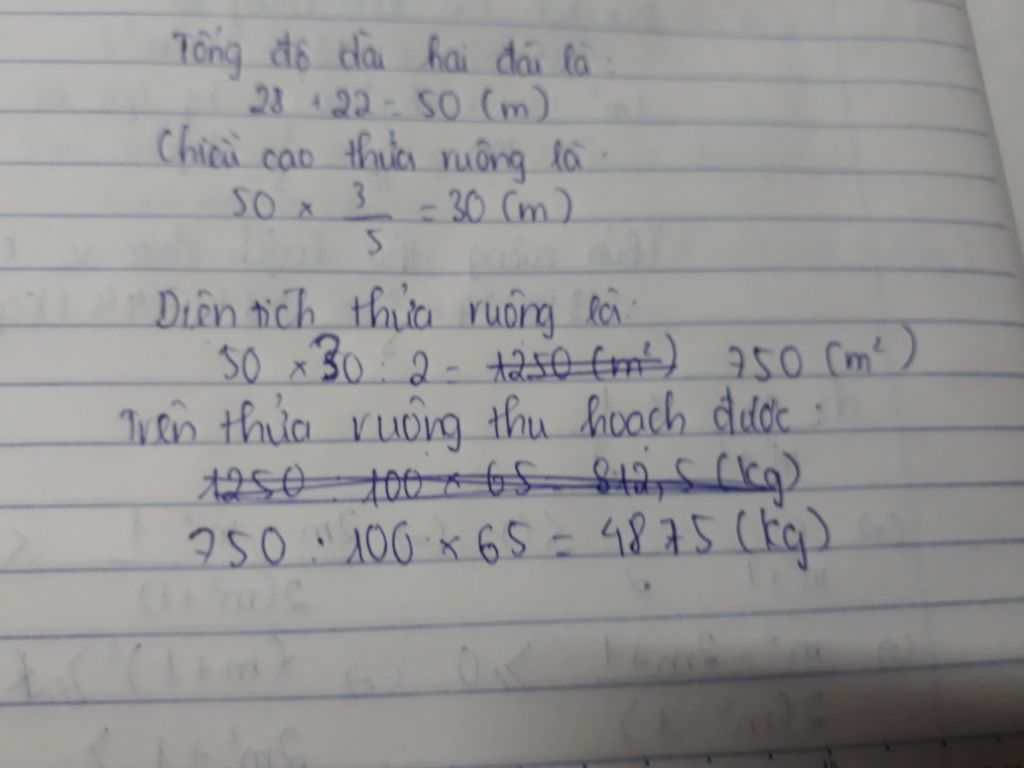 Tổng độ dài hai đái là:
28 + 22 = 50 (m)
Chiều cao thửa ruộng là:
50 × 3/5 = 30 (m)
Diện tích thửa ruộng là:
50 × 30 : 2 = 1250 (m²) 750 (m²)
Trên thửa ruộng thu hoạch được:
1250 : 100 × 65 = 812,5 (kg)
750 : 100 × 65 = 4875 (kg)